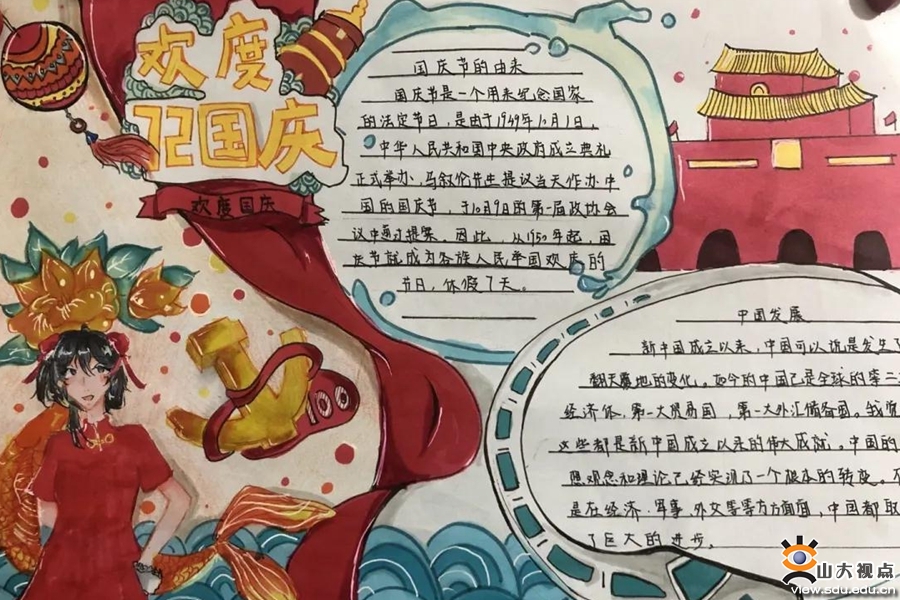 欢度
72国庆
欢度国庆
国庆节的由来
国庆节是一个用来纪念国家
的法定节日，是由于1949年10月1日，
中华人民共和国中央政府成立典礼
正式举办，马叙伦先生提议当天作办中
国的国庆节，于10月9日的第一届政协会
议中通过提案。因此，从1950年起，国
庆节就成为各族人民举国欢庆的
节日，休假7天。
100
中国发展
新中国成立以来，中国可以说是发生了
翻天覆地的变化。如今的中国已是全球的第二
经济体，第一大贸易国，第一大外汇储备国。我
这些都是新中国成立以来的伟大成就。中国的
想观念和理论已经实现了一个根本的转变。
是在经济、军事、外交等等方方面面，中国都取
了巨大的进步。
山大视点
view.sdu.edu.cn